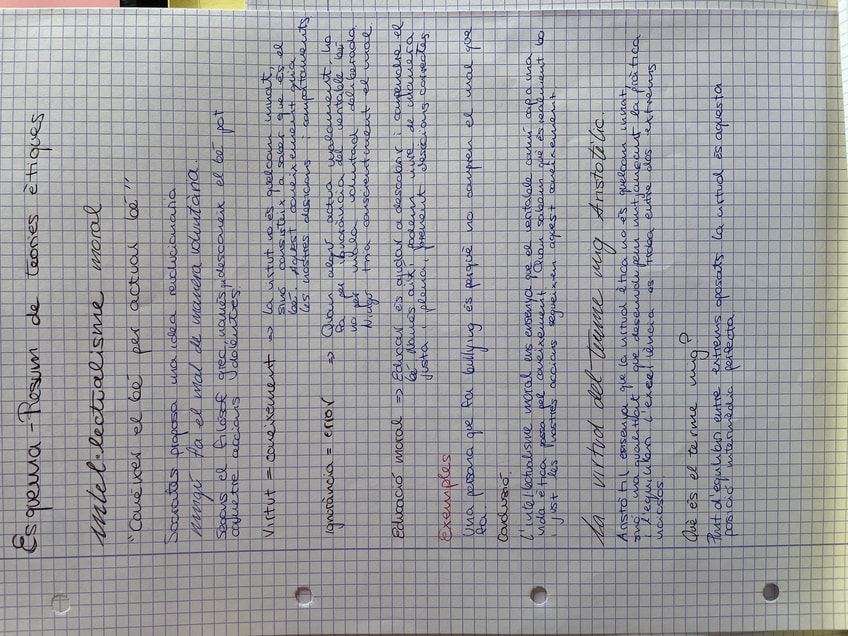 Esquema-Resum de teories ètiques
intel·lectualisme moral
"Conèixer el bé per actuar bé"
Sòcrates proposa una idea revolucionaria
ningú fa el mal de manera voluntària.
Segons el filòsof grec, només desconeix el bé pot
cometre accions dolentes.
Virtut = coneixement => La virtut no és quelcom innat,
sinó consisteix a saber que és el
bé. Aquest coneixement guia
les nostres desicions i comportaments
Ignorància = error => Quan algú actua malament, ho
fa per ignorància del veritable bé
no per mala voluntad deliberada
Ningú tria conscientment el mal.
Educació moral => Educar és ajudar a descobrir i comprendre el
bé. Només així, podem viure de manera
justa i plena, prenent desicions correctes
Exemples
Una persona que fa bullying és perquè no compren el mal que
fa.
Conclusió.
L'intel·lectualisme moral ens ensenya que el veritable camí cap a una
vida ètica passa pel coneixement. Quan sabem què és realment bo
i just les nostres accions segueixen aquest coneixement
La virtud del terme mig Aristotèlic.
Aristòtil ensenya que la virtud ètica no és quelcom innat,
sinó una qualitat que desenvolupem mitjançant la pràctica
i l'equilibri. L'excel·lència es troba entre dos extrems
viciosos
Què és el terme mig?
Punt d'equilibri entre extrems oposats. La virtud és aquesta
posició intermèdia perfecta